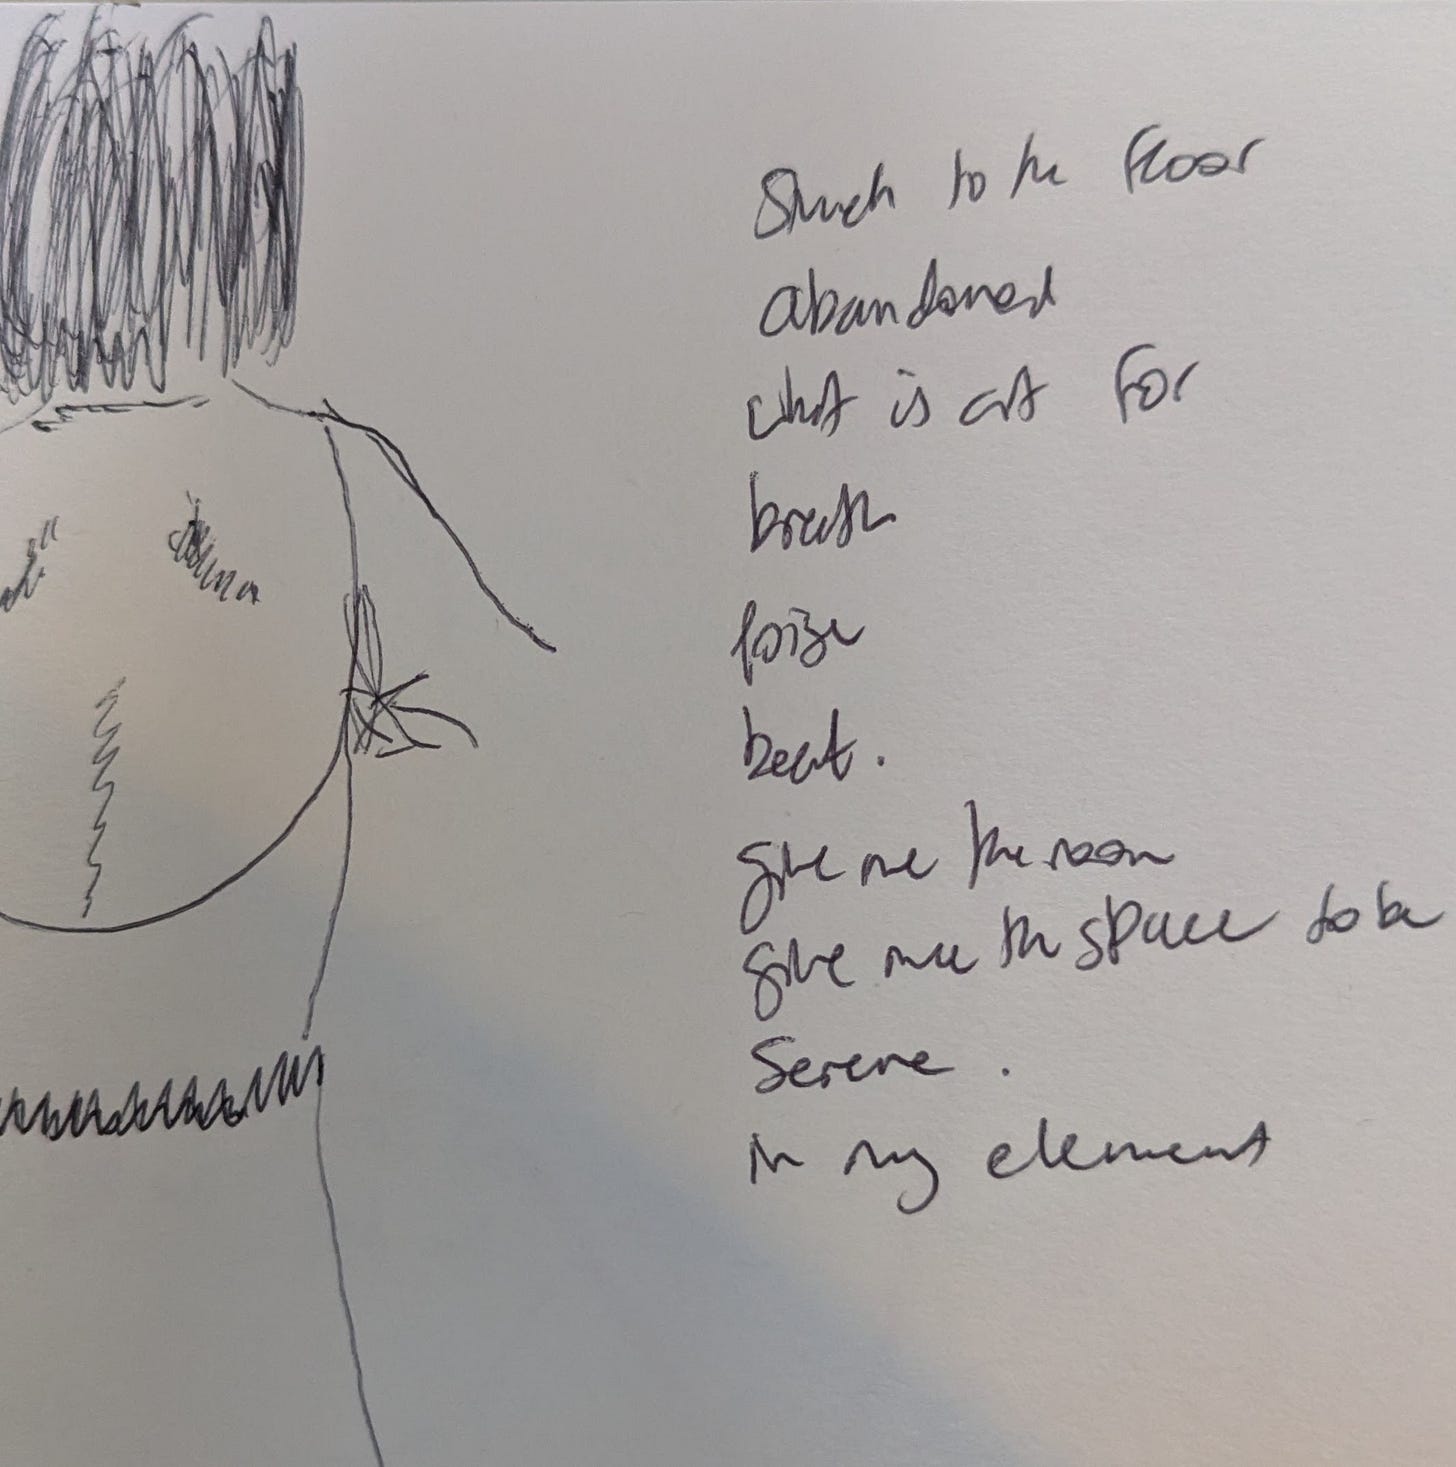 Stuck to the floor
abandoned
what is art for
breath
poize
beat.
give me the room
give me the space to be
Serene.
in my element